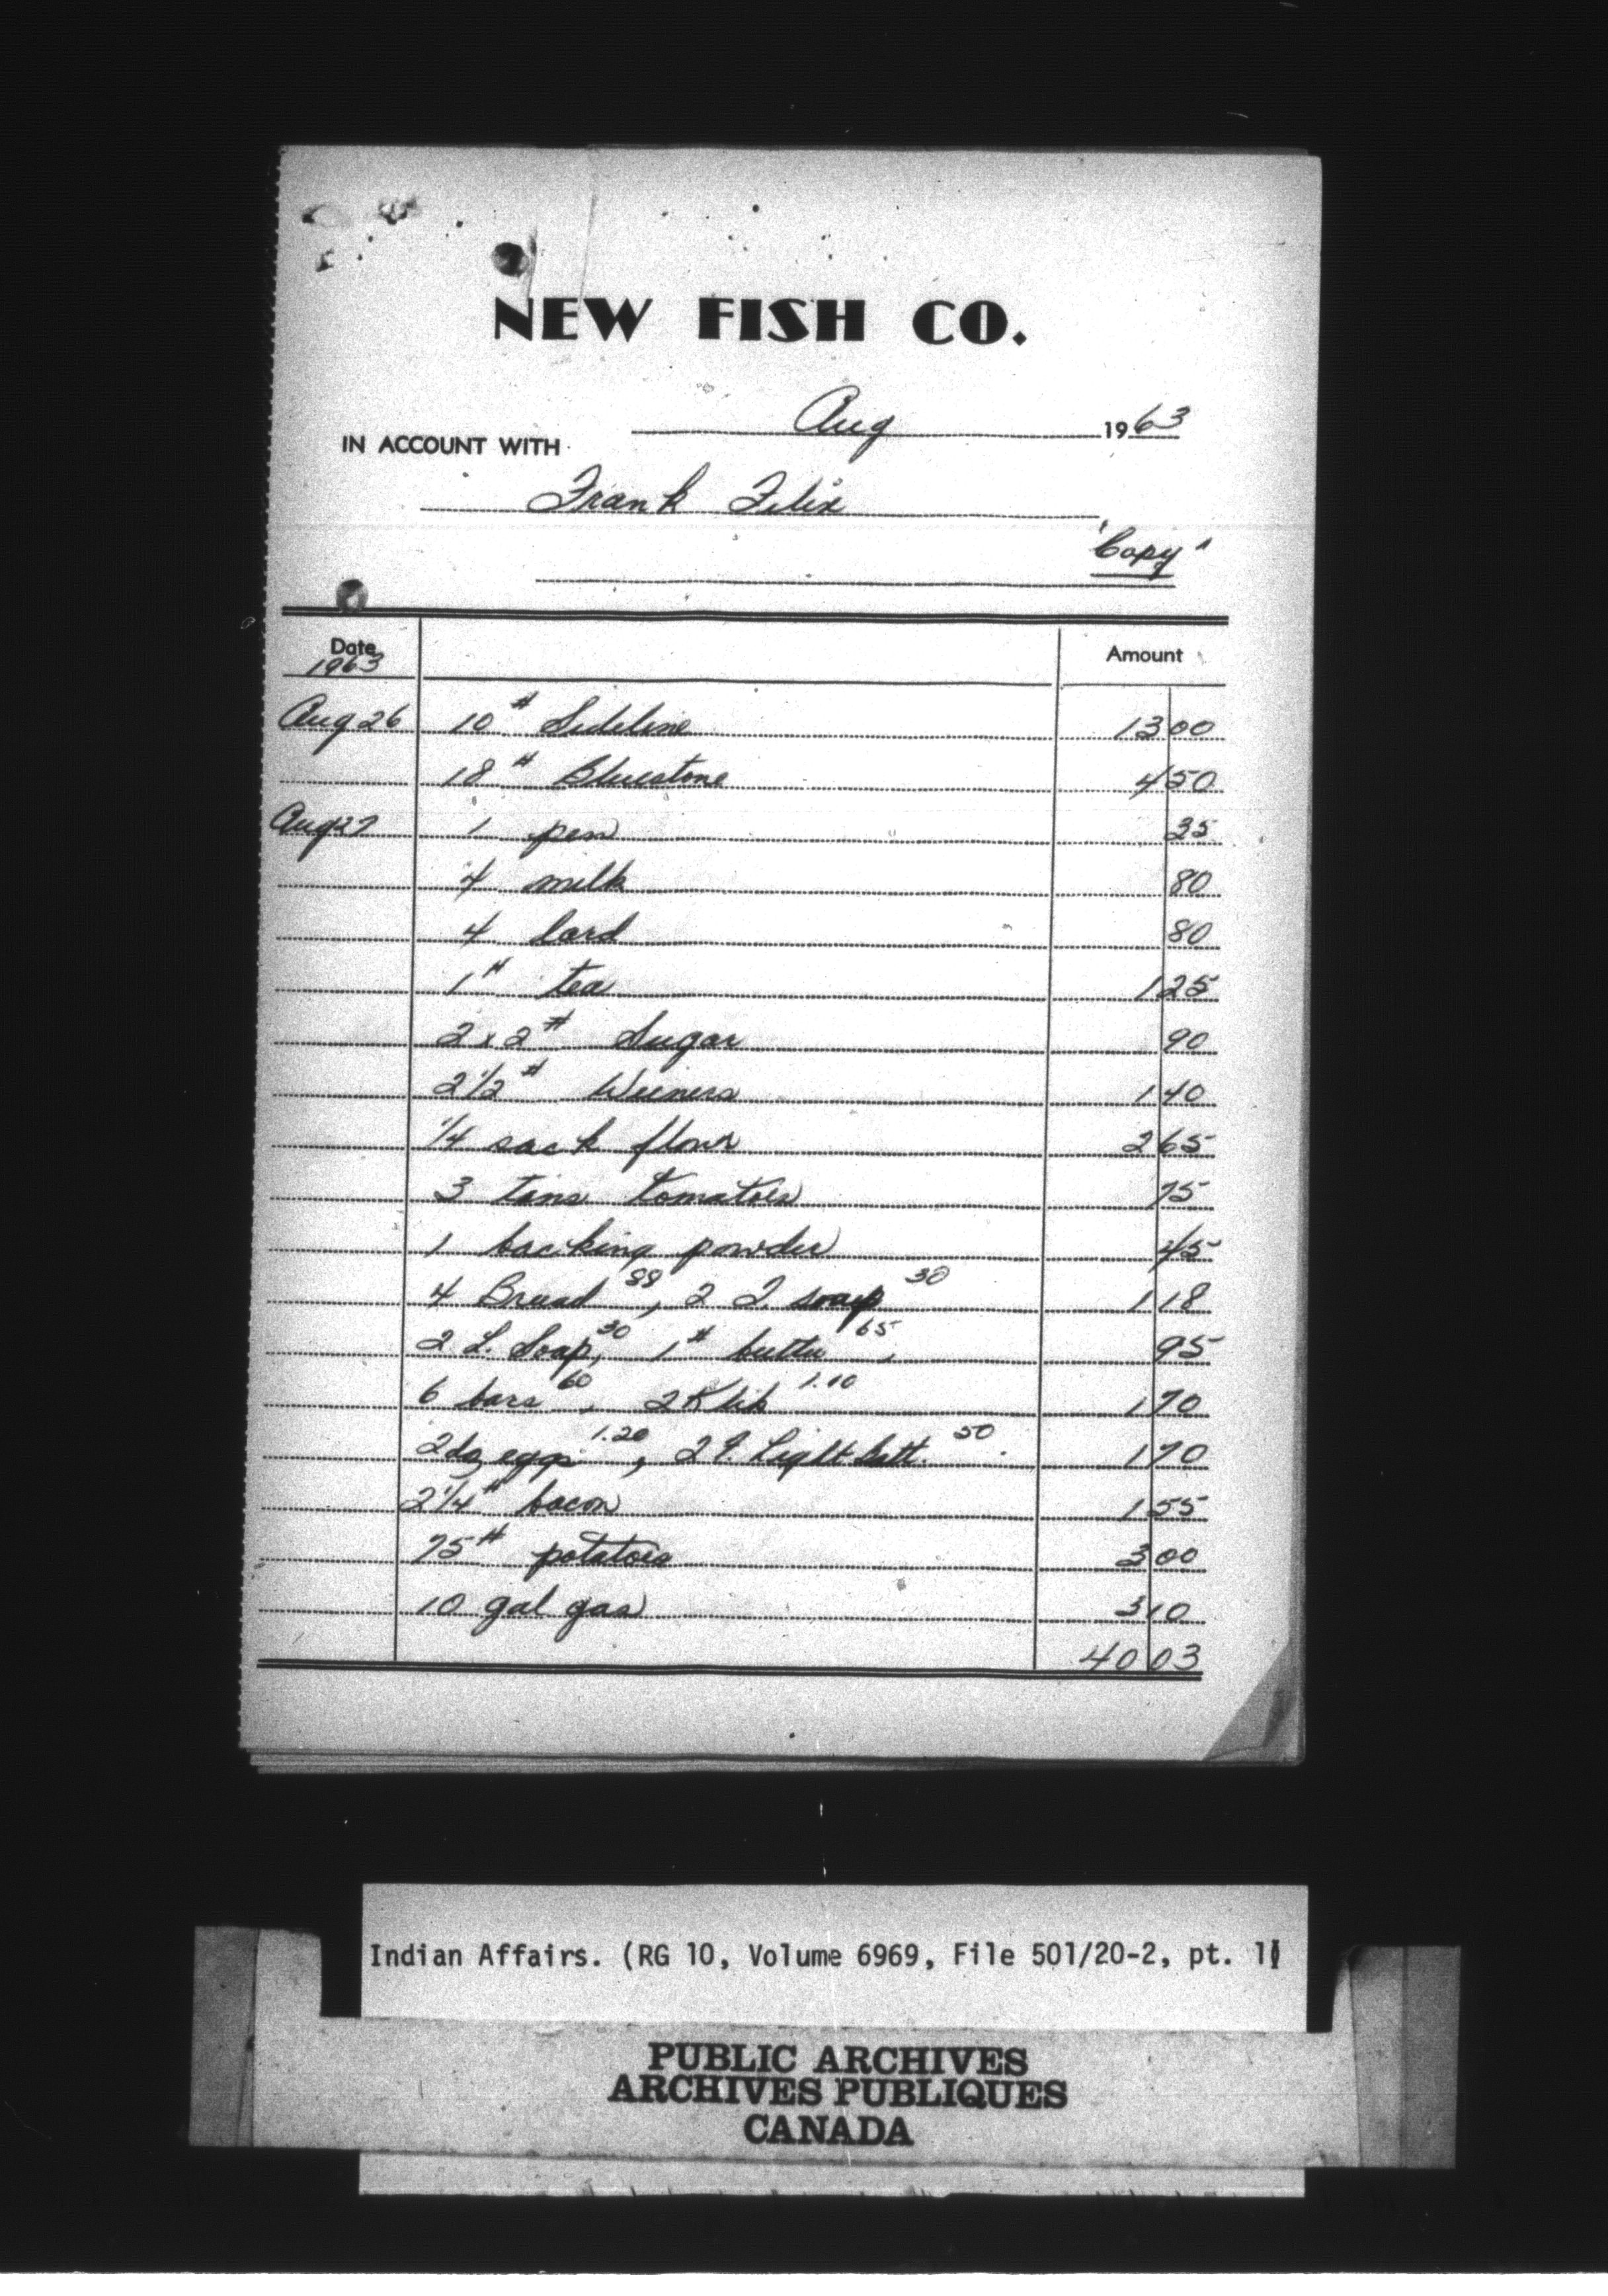 NEW FISH CO.
Aug 1963
IN ACCOUNT WITH
Frank Felix
"Copy"
Date Amount
1963
Aug 26 10 # Sideline 13 00
18 # Bluestone 4 50
Aug 27 1 pen 35
4 milk 80
4 lard 80
1 # tea 1 25
2 x 2 # Sugar 90
2 1/2 # Wieners 1 40
1/4 sack flour 2 65
3 tins tomatoes 75
1 backing powder 45
4 Bread 88, 2 T. soap 30 1 18
2 L. Soap 30, 1 # butter 65, 95
6 bars 60, 2 Klik 1.10 1 70
2 dz eggs 1.20, 2 F. Light Batt. 50 1 70
2 1/4 # bacon 1 55
75 # potatoes 3 00
10 gal gas 3 10
40 03
Indian Affairs. (RG 10, Volume 6969, File 501/20-2, pt. 1)
PUBLIC ARCHIVES
ARCHIVES PUBLIQUES
CANADA